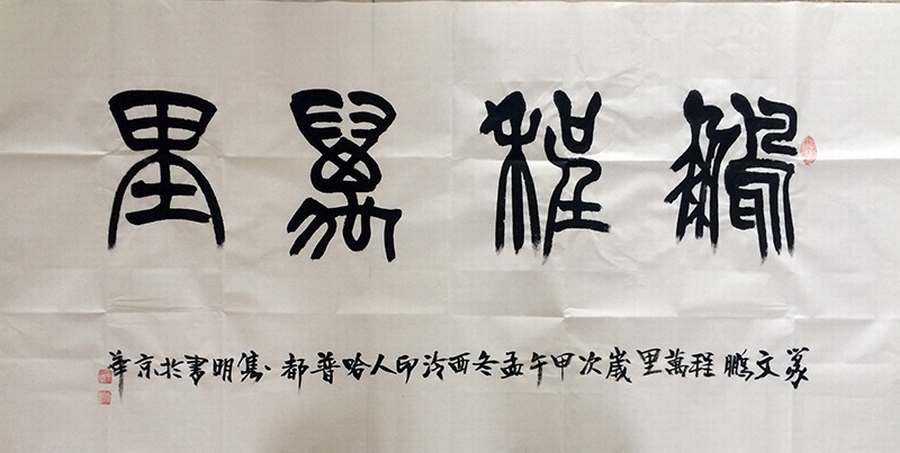 鵬程萬里
篆文鵬程萬里歲次甲午孟冬西泠印人哈普都·隽明書於京華